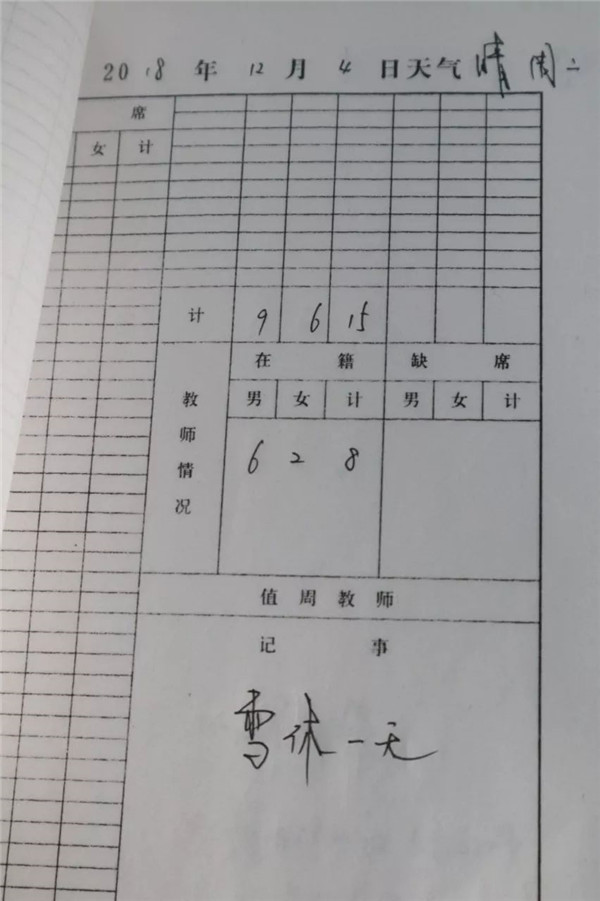 2018 年 12 月 4 日天气 晴 周二
席
女 计
计 9 6 15
在 籍 缺 席
教师情况 男 女 计 男 女 计
6 2 8
值 周 教 师
记 事
雪休一天